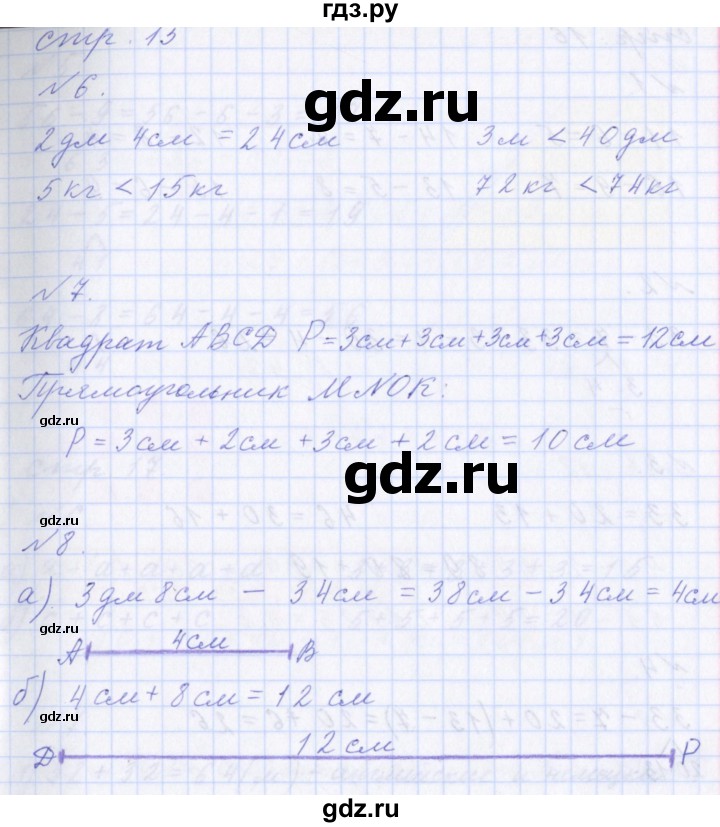 гдз.ру
стр. 13
№6.
2дм 4см = 24см 3м < 40дм
5кг < 15кг 72кг < 74кг
№7.
Квадрат ABCD P=3см+3см+3см+3см=12см
Прямоугольник MNOK:
P=3см + 2см +3см + 2см = 10см
№8.
а) 3дм 8см - 34см = 38см - 34см = 4см
4см
А В
б) 4см + 8см = 12 см
12см
D P
gdz.ru
gdz.ru
gdz.ru
gdz.ru
gdz.ru
gdz.ru
gdz.ru
gdz.ru
gdz.ru
gdz.ru